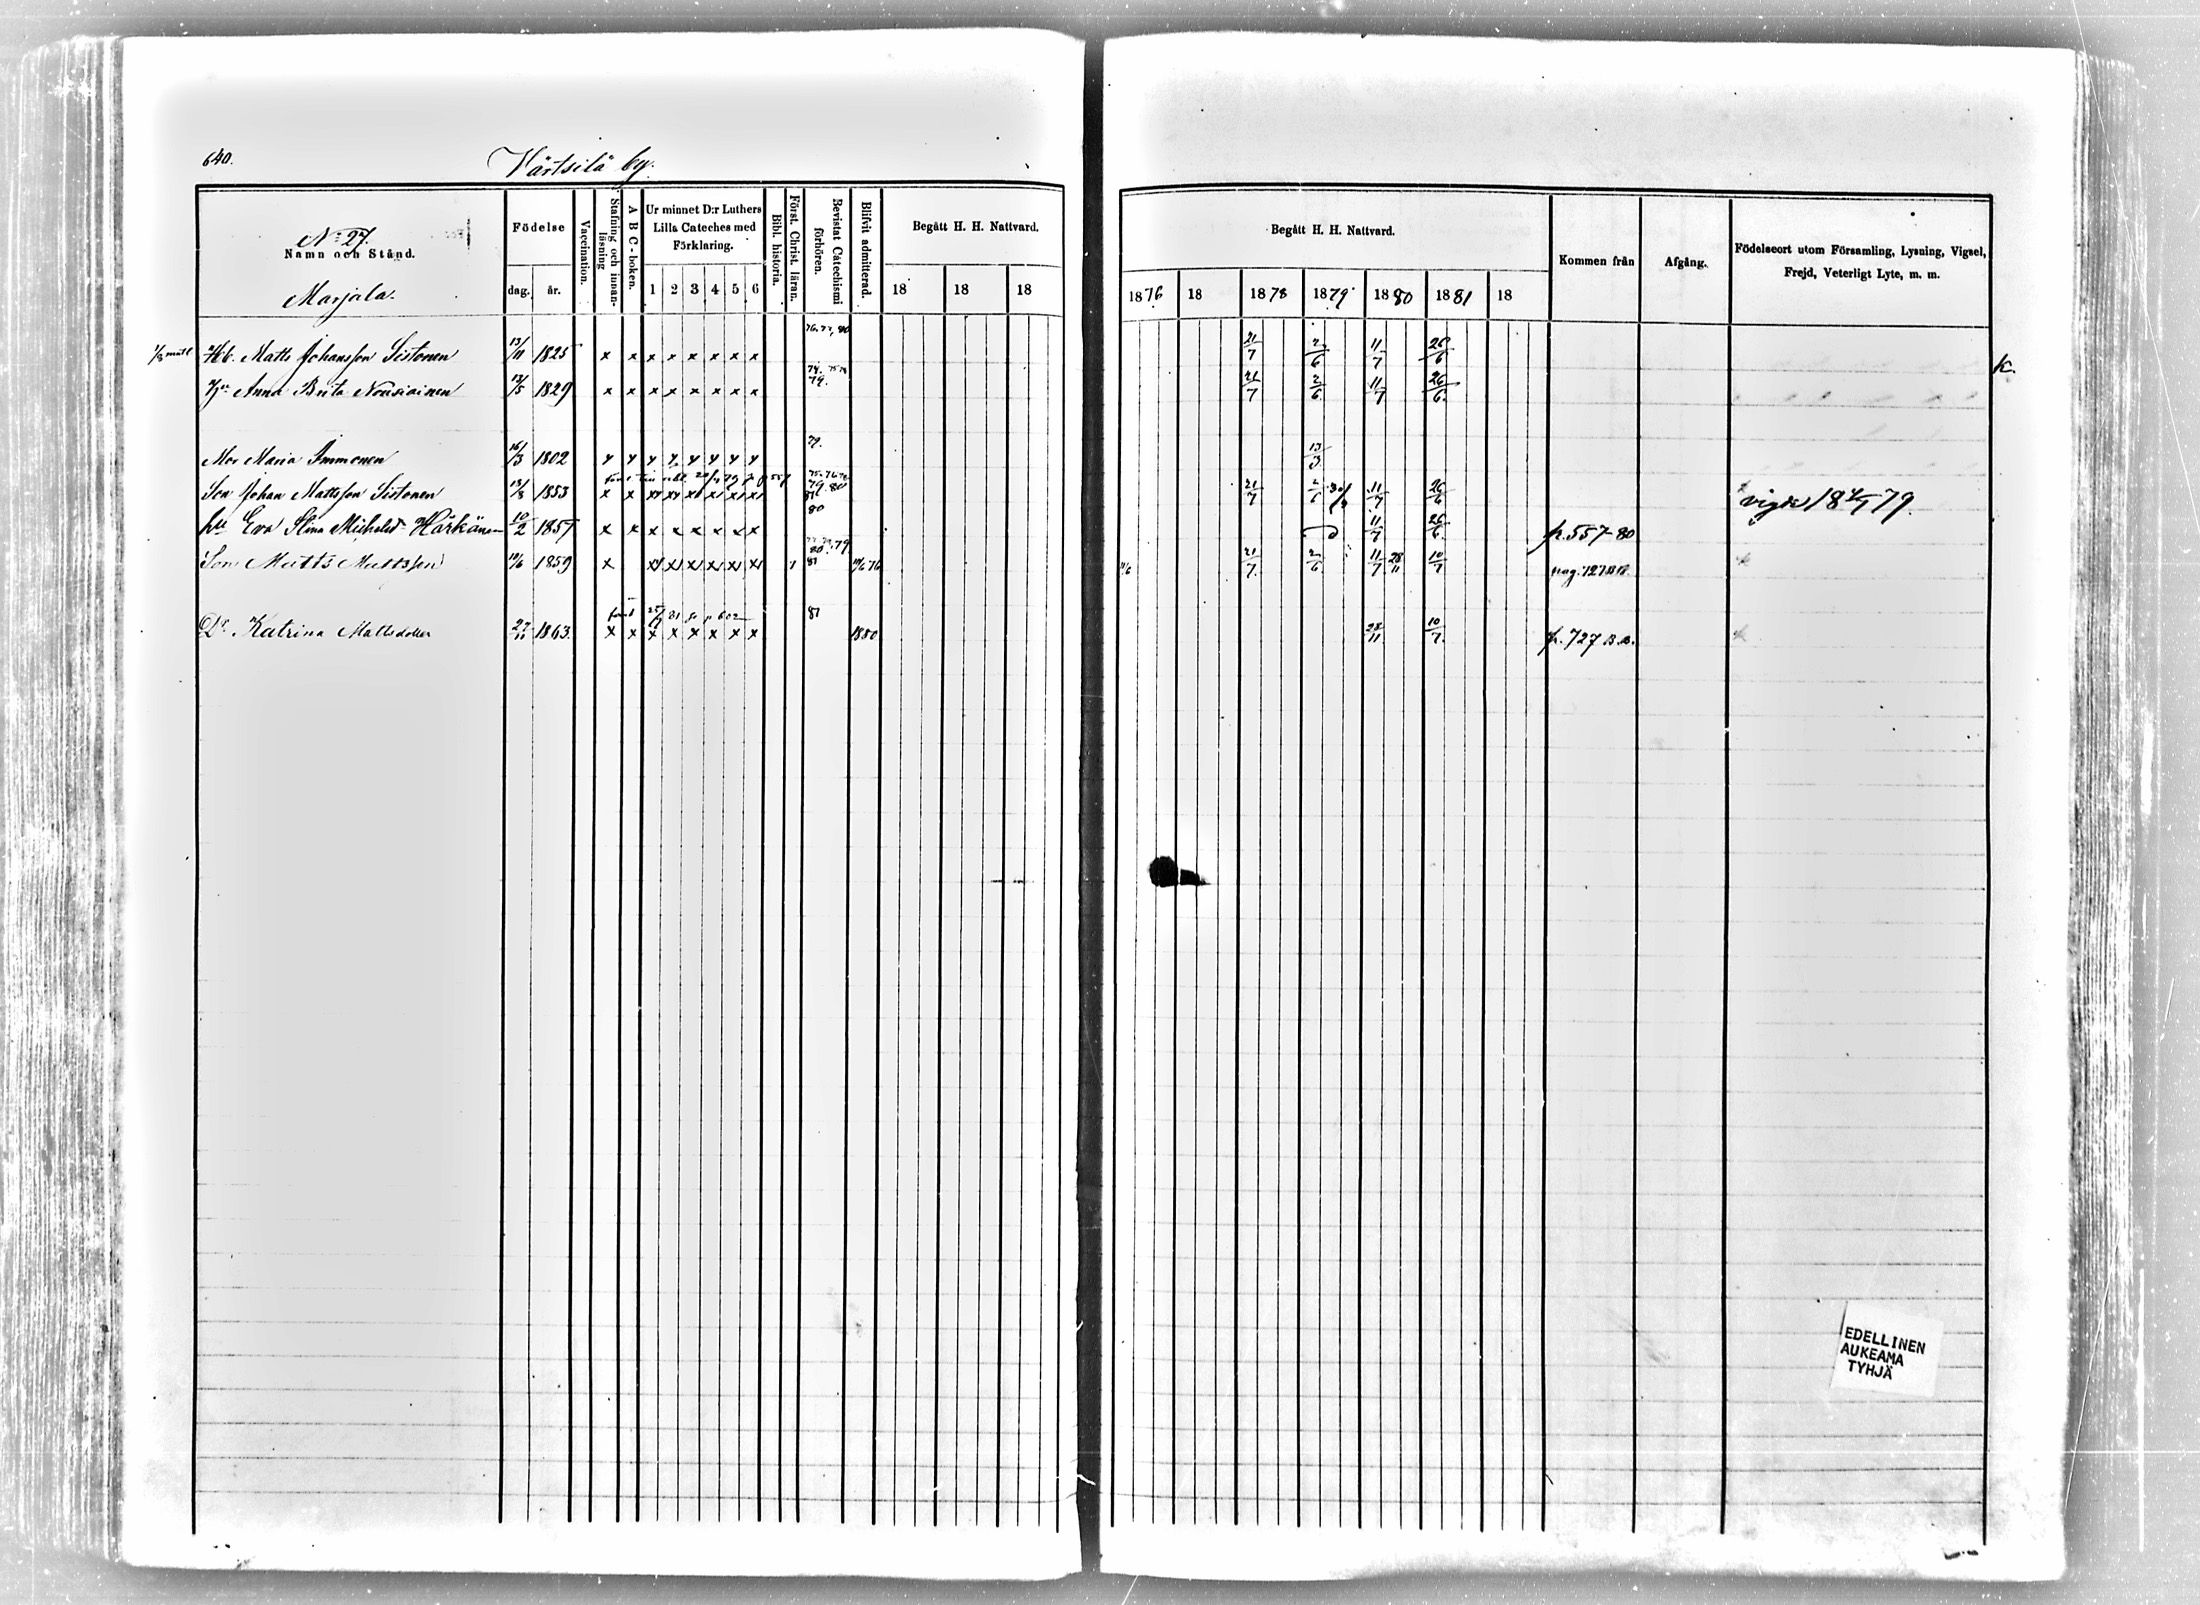 640.
Värtsilä by.
No 27.
Namn och Stånd.
Marjala.
Födelse
dag. år.
Vaccination.
Stafning och innanläsning
A B C-boken.
Ur minnet D:r Luthers Lilla Cateches med Förklaring.
1 2 3 4 5 6
Bibl. historia.
Först. Christ. läran.
Bevistat Catechismi förhören.
Blifvit admitterad.
Begått H. H. Nattvard.
18 18 18
Begått H. H. Nattvard.
1876 18 1878 1879 1880 1881 18
Kommen från
Afgång.
Födelseort utom Församling, Lysning, Vigsel, Frejd, Veterligt Lyte, m. m.
76. 77, 80
1/8 mtl Hb. Matts Johansson Sistonen 13/11 1825 x x x x x x x x 21/7 2/6 11/7 26/6 K.
Anna Brita Nousiainen 13/5 1829 x x x x x x x x 79. 21/7 2/6 11/7 26/6
Mor Maria Immonen 16/3 1802 79. 13/3
Son Johan Mattsson Sistonen 13/8 1853 79. 80 81 21/7 2/6 11/7 26/6
Eva Stina Michelsd. Härkönen 10/2 1857 x x x x x x x x 80 11/7 26/6 p. 557 80
Son Matts Mattsson 1859 80. 79 81 76 21/7 2/6 11/7 28/11 10/7 pag. 727 BB.
Dr Katrina Mattsdotter 27/11 1863. x x x x x x x x 81 1880 28/11 10/7. p. 727 B.B.
EDELLINEN
AUKEAMA
TYHJÄ